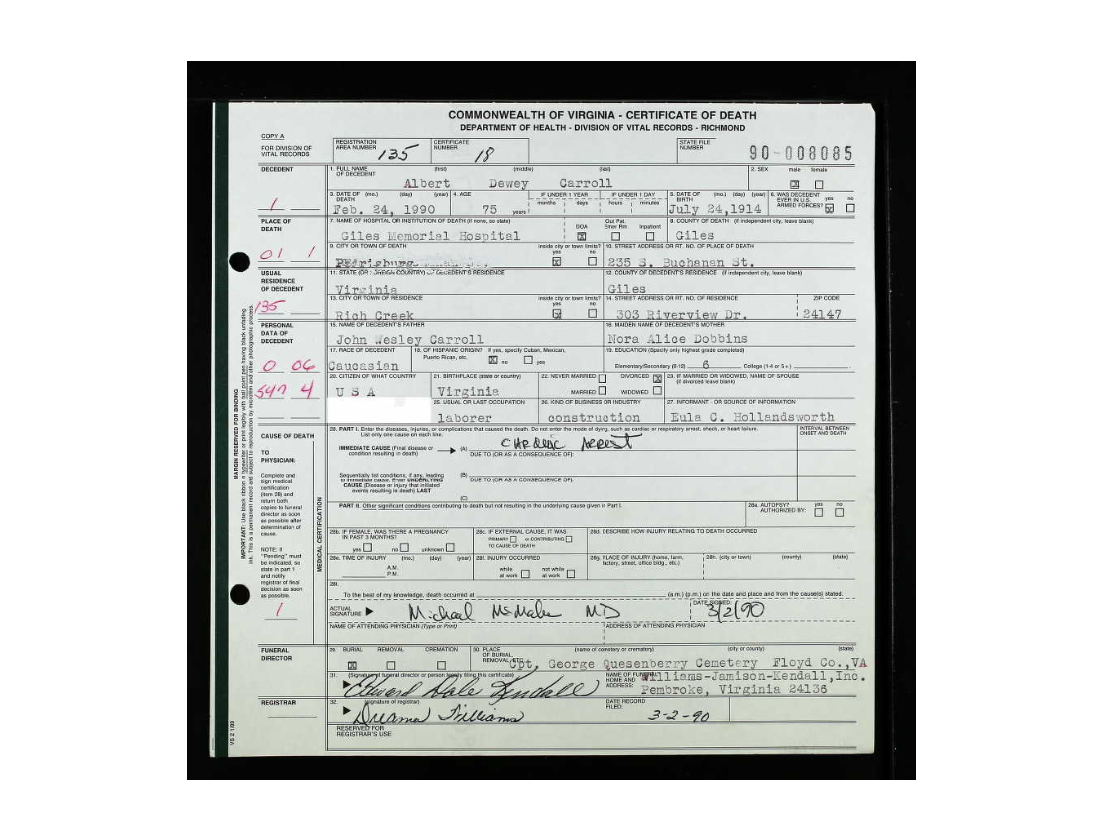 COMMONWEALTH OF VIRGINIA - CERTIFICATE OF DEATH
DEPARTMENT OF HEALTH - DIVISION OF VITAL RECORDS - RICHMOND
COPY A
FOR DIVISION OF VITAL RECORDS
REGISTRATION AREA NUMBER 135 CERTIFICATE NUMBER 18 STATE FILE NUMBER 90-008085
DECEDENT
1. FULL NAME OF DECEDENT (first) (middle) (last) 2. SEX male female
Albert Dewey Carroll X
3. DATE OF DEATH (mo.) (day) (year) 4. AGE IF UNDER 1 YEAR IF UNDER 1 DAY 5. DATE OF BIRTH (mo.) (day) (year) 6. WAS DECEDENT EVER IN U.S. ARMED FORCES? yes no
months days hours minutes
1 Feb. 24, 1990 75 years July 24,1914 X
PLACE OF DEATH
7. NAME OF HOSPITAL OR INSTITUTION OF DEATH (if none, so state) DOA Out Pat. Emer Rm Inpatient 8. COUNTY OF DEATH (if independent city, leave blank)
Giles Memorial Hospital X Giles
01 1
9. CITY OR TOWN OF DEATH inside city or town limits? yes no 10. STREET ADDRESS OR RT. NO. OF PLACE OF DEATH
X 235 S. Buchanan St.
USUAL RESIDENCE OF DECEDENT
11. STATE (OR FOREIGN COUNTRY) OF DECEDENT'S RESIDENCE 12. COUNTY OF DECEDENT'S RESIDENCE (if independent city, leave blank)
Virginia Giles
135
13. CITY OR TOWN OF RESIDENCE inside city or town limits? yes no 14. STREET ADDRESS OR RT. NO. OF RESIDENCE ZIP CODE
Rich Creek X 303 Riverview Dr. 24147
PERSONAL DATA OF DECEDENT
15. NAME OF DECEDENT'S FATHER 16. MAIDEN NAME OF DECEDENT'S MOTHER
John Wesley Carroll Nora Alice Dobbins
17. RACE OF DECEDENT 18. OF HISPANIC ORIGIN? If yes, specify Cuban, Mexican, Puerto Rican, etc. X no yes 19. EDUCATION (Specify only highest grade completed)
0 06 Caucasian Elementary/Secondary (0-12) 6 College (1-4 or 5+)
20. CITIZEN OF WHAT COUNTRY 21. BIRTHPLACE (state or country) 22. NEVER MARRIED DIVORCED X 23. IF MARRIED OR WIDOWED, NAME OF SPOUSE (if divorced leave blank)
547 4 U S A Virginia MARRIED WIDOWED
25. USUAL OR LAST OCCUPATION 26. KIND OF BUSINESS OR INDUSTRY 27. INFORMANT - OR SOURCE OF INFORMATION
laborer construction Eula C. Hollandsworth
CAUSE OF DEATH
TO PHYSICIAN:
Complete and sign medical certification (item 28) and return both copies to funeral director as soon as possible after determination of cause.
NOTE: If "Pending" must be indicated, so state in part 1 and notify registrar of final decision as soon as possible.
1
MEDICAL CERTIFICATION
28. PART I. Enter the diseases, injuries, or complications that caused the death. Do not enter the mode of dying, such as cardiac or respiratory arrest, shock, or heart failure. List only one cause on each line. INTERVAL BETWEEN ONSET AND DEATH
IMMEDIATE CAUSE (Final disease or condition resulting in death) (A) CARDIAC ARREST
DUE TO (OR AS A CONSEQUENCE OF):
Sequentially list conditions, if any, leading to immediate cause. Enter UNDERLYING CAUSE (Disease or injury that initiated events resulting in death) LAST
(B)
DUE TO (OR AS A CONSEQUENCE OF):
(C)
PART II. Other significant conditions contributing to death but not resulting in the underlying cause given in Part I. 28a. AUTOPSY? AUTHORIZED BY: yes no
28b. IF FEMALE, WAS THERE A PREGNANCY IN PAST 3 MONTHS? yes no unknown 28c. IF EXTERNAL CAUSE, IT WAS PRIMARY or CONTRIBUTING TO CAUSE OF DEATH 28d. DESCRIBE HOW INJURY RELATING TO DEATH OCCURRED
28e. TIME OF INJURY (mo.) (day) (year) A.M. P.M. 28f. INJURY OCCURRED while at work not while at work 28g. PLACE OF INJURY (home, farm, factory, street, office bldg., etc.) 28h. (city or town) (county) (state)
28i. To the best of my knowledge, death occurred at (a.m.) (p.m.) on the date and place and from the cause(s) stated.
ACTUAL SIGNATURE Michael McMahon MD DATE SIGNED: 3/2/90
NAME OF ATTENDING PHYSICIAN (Type or Print) ADDRESS OF ATTENDING PHYSICIAN
FUNERAL DIRECTOR
29. BURIAL REMOVAL CREMATION 30. PLACE OF BURIAL, REMOVAL, ETC. (name of cemetery or crematory) (city or county) (state)
X Cpt, George Quesenberry Cemetery Floyd Co.,VA
31. (Signature of funeral director or person legally filing this certificate) NAME OF FUNERAL HOME AND ADDRESS: Williams-Jamison-Kendall,Inc.
Edward Dale Kendall Pembroke, Virginia 24136
REGISTRAR
32. (signature of registrar) DATE RECORD FILED:
Dreama Williams 3-2-90
RESERVED FOR REGISTRAR'S USE
VS 2 1/89
MARGIN RESERVED FOR BINDING